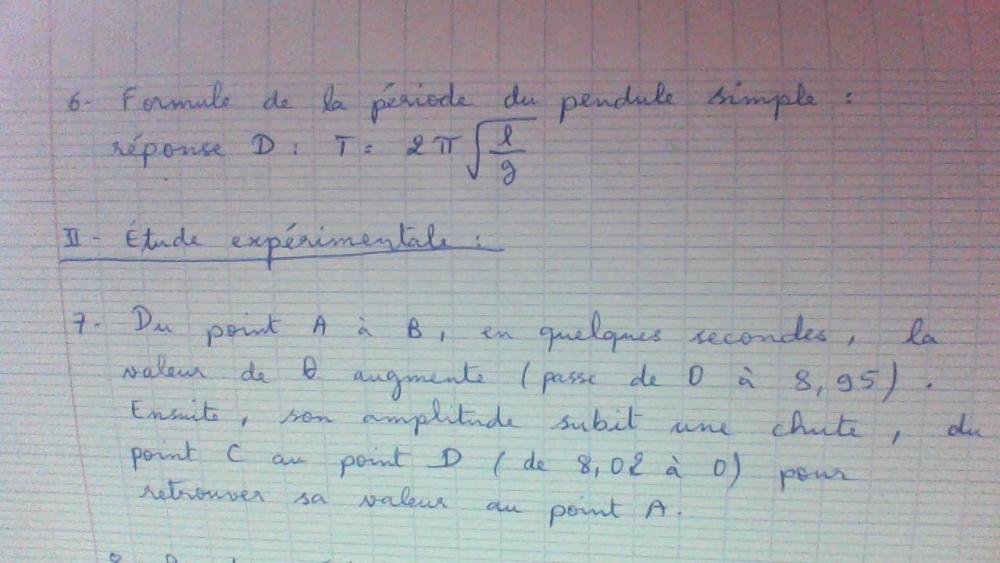 6- Formule de la période du pendule simple :
réponse D : T = 2π√(l/g)
II - Étude expérimentale :
7- Du point A à B, en quelques secondes, la
valeur de θ augmente (passe de 0 à 8,95).
Ensuite, son amplitude subit une chute, du
point C au point D (de 8,02 à 0) pour
retrouver sa valeur au point A.